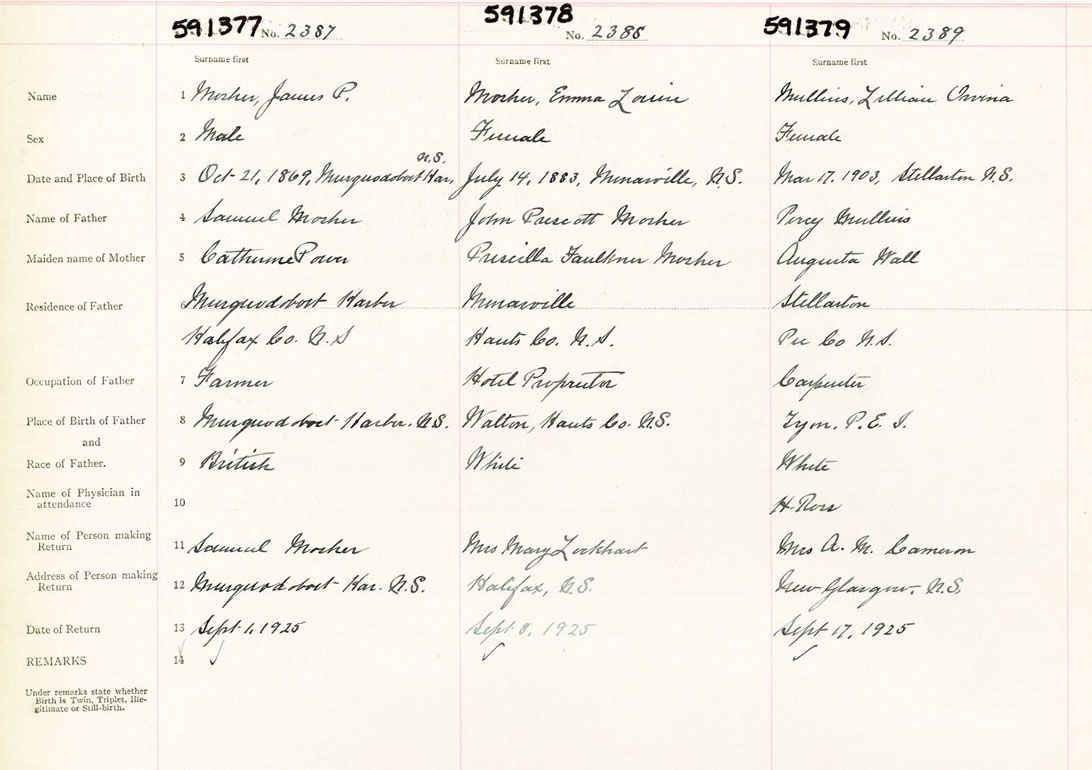 591377 No. 2387 591378 No. 2388 591379 No. 2389
Surname first Surname first Surname first
Name 1 Mosher, James P. Mosher, Emma Louise Mullins, Lillian Orvina
Sex 2 Male Female Female
N.S.
Date and Place of Birth 3 Oct 21, 1869, Musquodoboit Har. July 14, 1883, Minasville, N.S. Mar 17. 1903, Stellarton N.S.
Name of Father 4 Samuel Mosher John Prescott Mosher Percy Mullins
Maiden name of Mother 5 Catherine Power Priscilla Faulkner Mosher Augusta Wall
Residence of Father 6 Musquodoboit Harbor Minasville Stellarton
Halifax Co. N.S Hants Co. N.S. Pic Co N.S.
Occupation of Father 7 Farmer Hotel Proprietor Carpenter
Place of Birth of Father 8 Musquodoboit Harbor. N.S. Walton, Hants Co. N.S. Tyon. P.E.I.
and
Race of Father. 9 British White White
Name of Physician in
attendance 10 H. Ross
Name of Person making
Return 11 Samuel Mosher Mrs Mary Lockhart Mrs A. M. Cameron
Address of Person making
Return 12 Musquodoboit Har. N.S. Halifax, N.S. New Glasgow, N.S.
Date of Return 13 Sept 1, 1925 Sept 8, 1925 Sept 17, 1925
REMARKS 14
Under remarks state whether
Birth is Twin, Triplet, Ille-
gitimate or Still-birth.